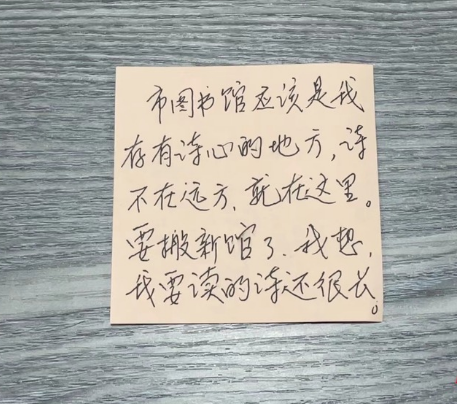 市图书馆应该是我
存有诗心的地方，诗
不在远方，就在这里。
要搬新馆了．我想，
我要读的诗还很长。